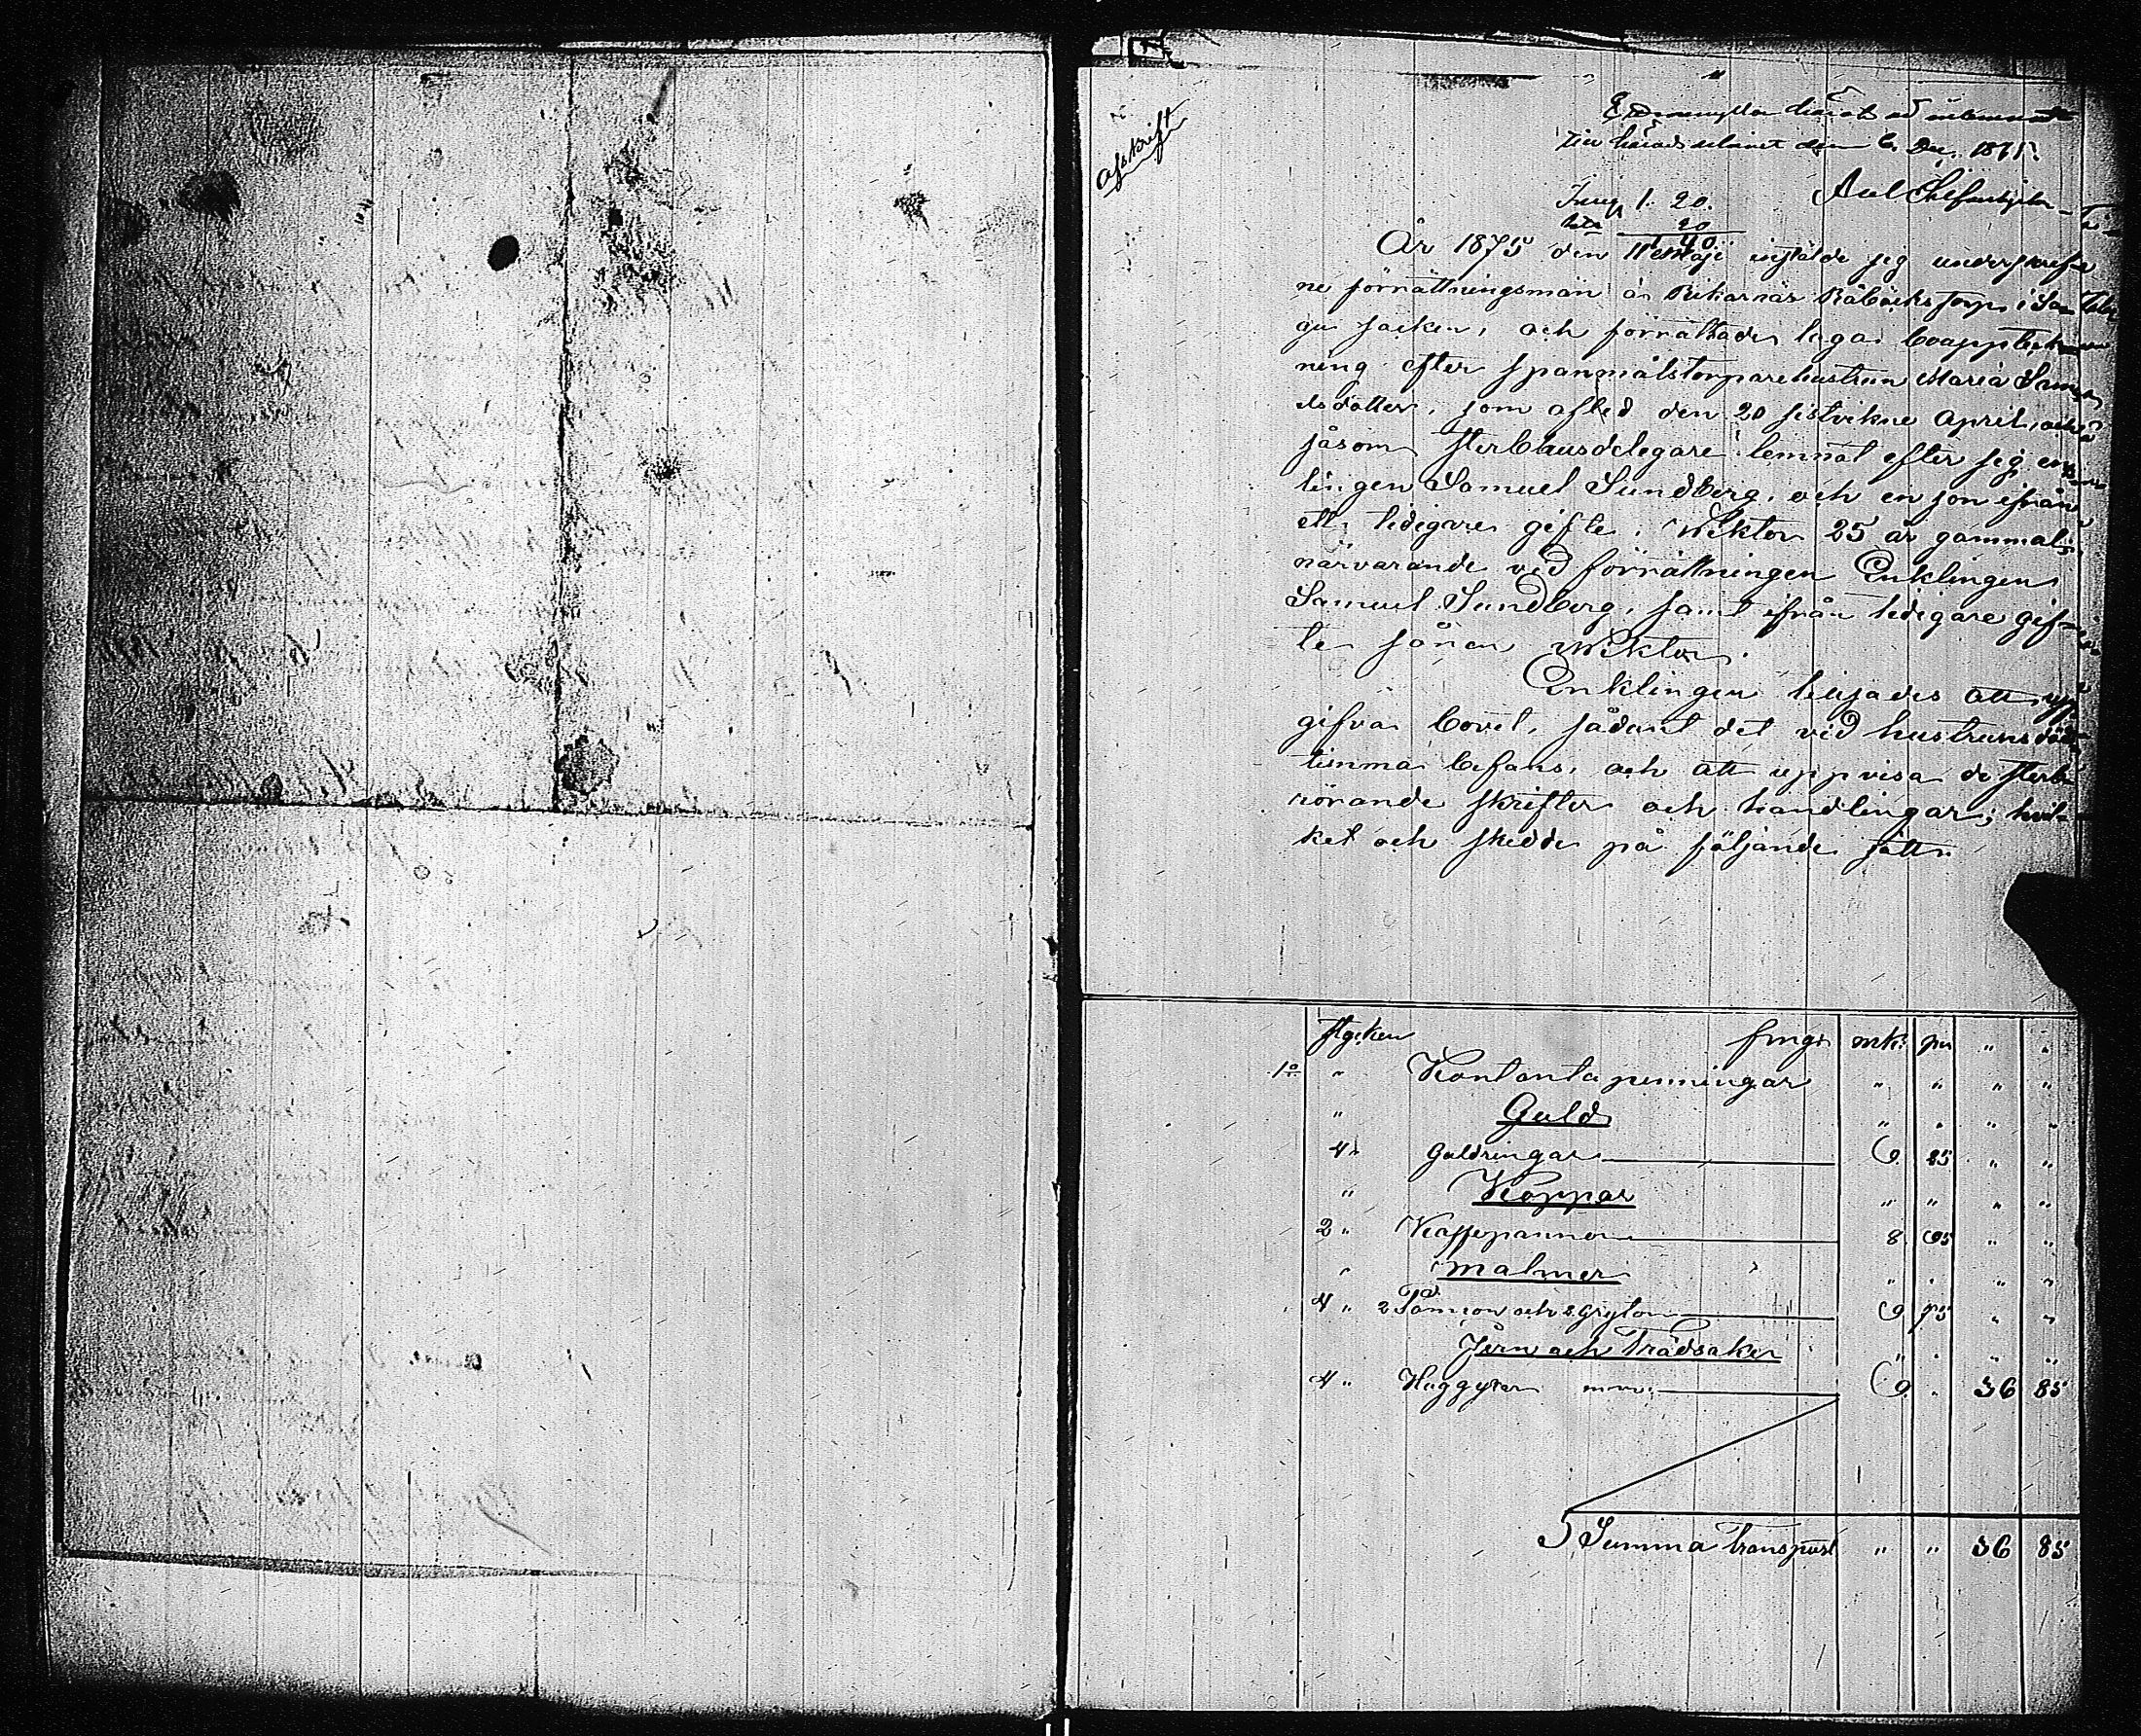 Afskrift
till häradsarkivet den 6 Dec. 1875.
1. 20.
20
1 40
År 1875 den 11 Maji instälde sig underskrif-
ne förrättningsmän å Rikarnäs Råbäcks torp i Sa
gu socken, och förrättade laga bouppteck
ning efter spanmålstorparehustrun Maria Samu
elsdotter, som afled den 20 sistvikne April, och
såsom sterbhusdelegare lemnat efter sig enk
lingen Samuel Sundberg, och en son ifrån
ett tidigare gifte, Wiktor 25 år gammal,
närvarande vid förrättningen Enklingen
Samuel Sundberg, samt ifrån tidigare gif-
te sonen Wiktor.
Enklingen tillsades att upp
gifva boet, sådant det vid hustruns döds
timma befans, och att uppvisa de sterb
rörande skrifter och handlingar; hvil-
ket och skedde på följande sätt.
mk: pi " "
1o " Kontanta penningar " " " "
" Guld " " " "
4 " Guldringar 9 25 " "
" Koppar " " " "
2 " Kaffepannor 8 95 " "
" Malmer " " " "
4 " 2 och 2 Grytor 9 75 " "
Jern och Trädsaker " " " "
4 " Huggyxor m.m. 9 " 36 85
Summa Transport " " 36 85